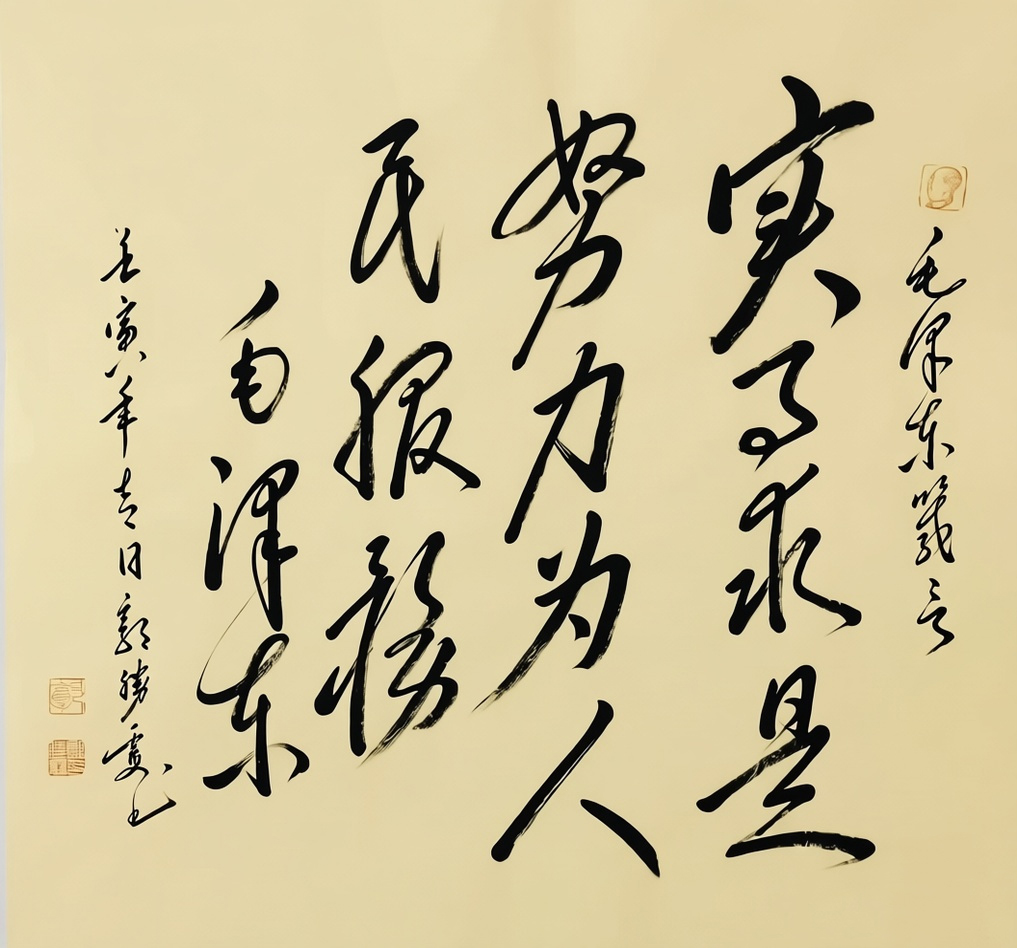 毛泽东箴言
实事求是
努力为人
民服务
毛泽东
壬寅年吉日郭胜